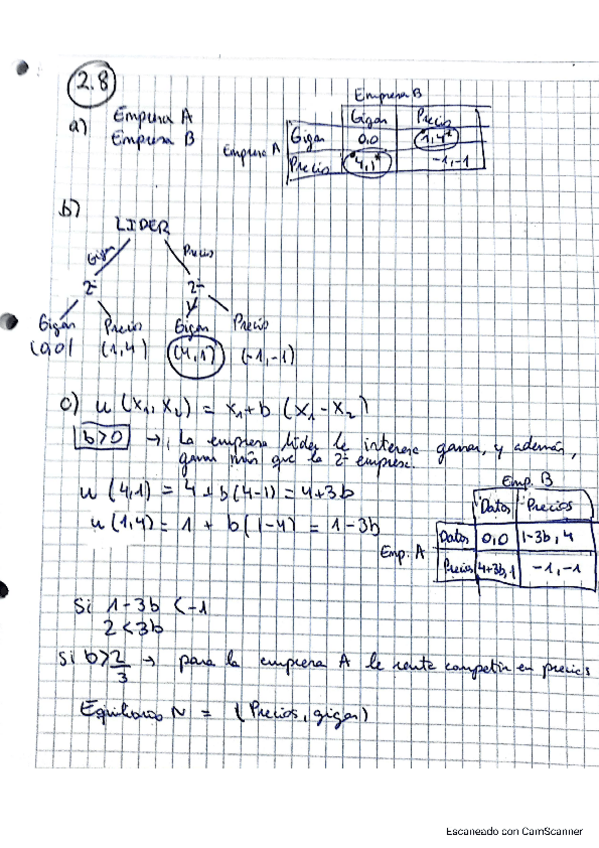 2.8
a) Empresa A
Empresa B
Empresa B
Gigas Precio
Empresa A Gigas 0,0 1,4*
Precio *4,1* -1,-1
b)
LIDER
Gigas Precio
2ª 2ª
Gigas Precio Gigas Precio
(0,0) (1,4) (4,1) (-1,-1)
c) u (x₁, x₂) = x₁ + b (x₁ - x₂)
b>0 → La empresa líder le interesa ganar, y además,
ganar más que la 2ª empresa.
u (4,1) = 4 + b(4-1) = 4+3b
u (1,4) = 1 + b(1-4) = 1-3b
Emp. B
Datos Precios
Emp. A Datos 0,0 1-3b, 4
Precios 4+3b,1 -1,-1
Si 1-3b < -1
2 < 3b
Si b > 2/3 → para la empresa A le renta competir en precios
Equilibrios N = (Precios, gigas)
Escaneado con CamScanner